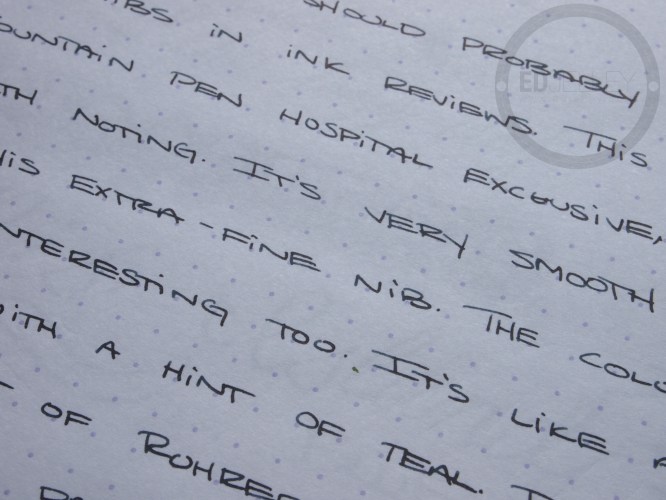 SHOULD PROBABLY
IN INK REVIEWS. THIS
FOUNTAIN PEN HOSPITAL EXCLUSIVE,
NOTING. IT'S VERY SMOOTH
EXTRA-FINE NIB. THE
INTERESTING TOO. IT'S LIKE A
WITH A HINT OF TEAL.
OF